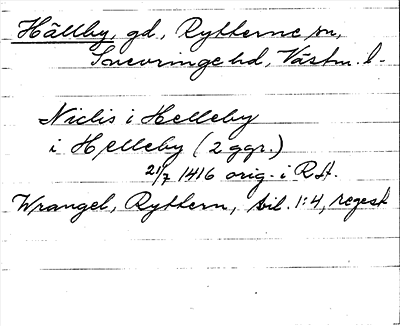 Hällby, gd, Rytterne sn,
Snevringe hd, Västm. l.
Niclis i Helleby
i Helleby (2 ggr.)
21/7 1416 orig. i RA.
Wrangel, Ryttern, bil. 1:4, regest